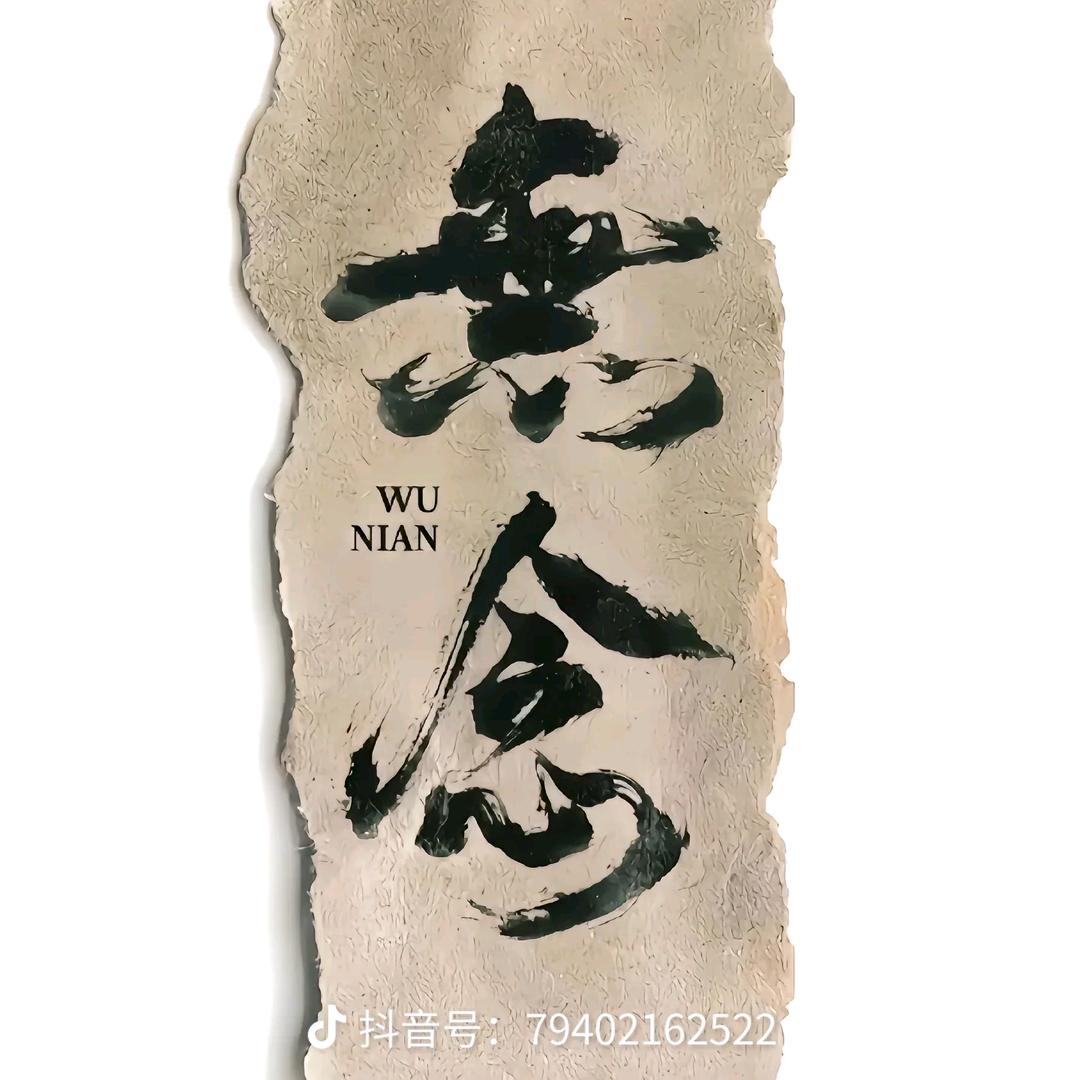 無念
WU
NIAN
抖音号：79402162522